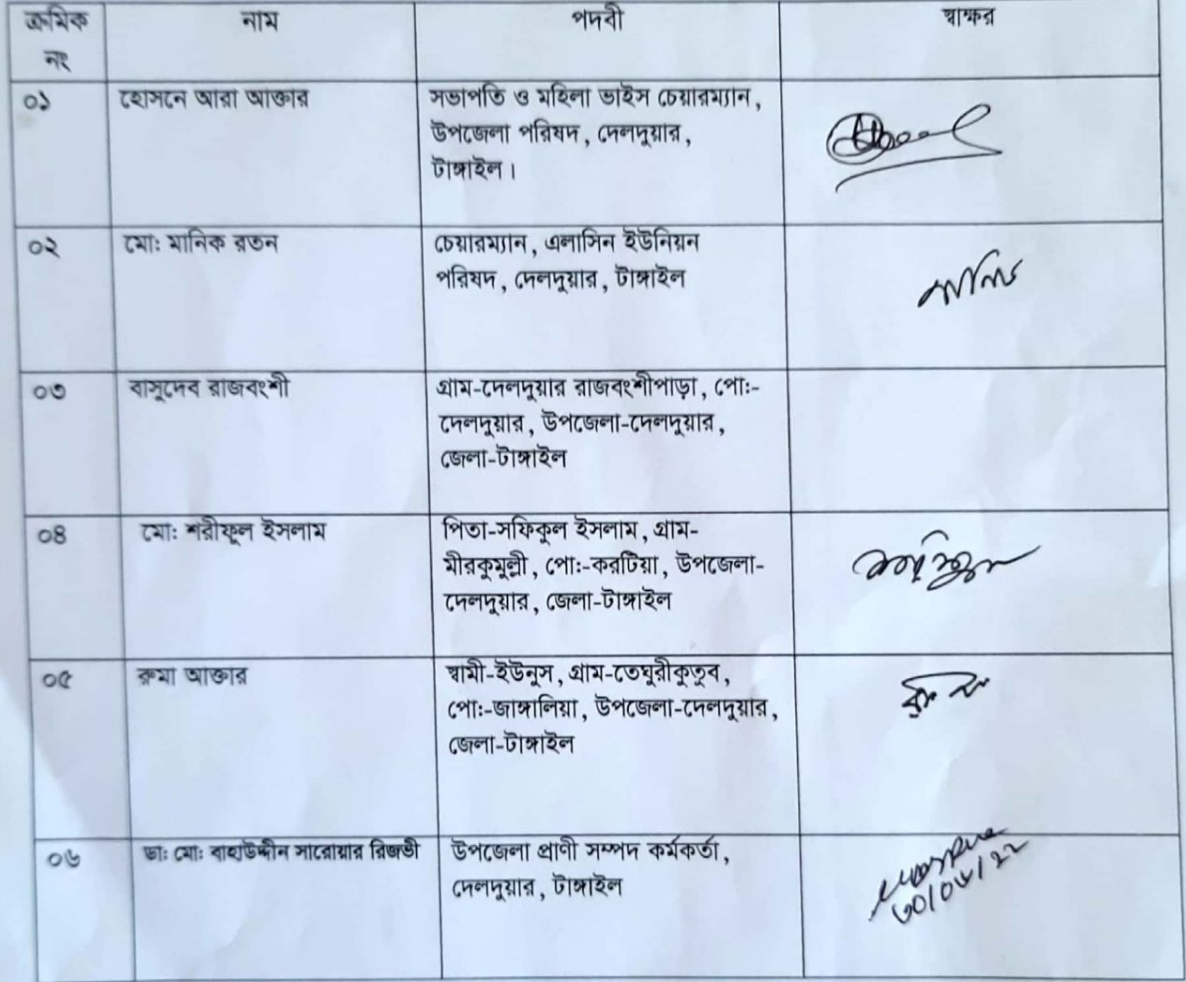 ক্রমিক নং
নাম
পদবী
স্বাক্ষর
০১
হোসনে আরা আক্তার
সভাপতি ও মহিলা ভাইস চেয়ারম্যান,
উপজেলা পরিষদ, দেলদুয়ার,
টাঙ্গাইল।
০২
মো: মানিক রতন
চেয়ারম্যান, এলাসিন ইউনিয়ন
পরিষদ, দেলদুয়ার, টাঙ্গাইল
০৩
বাসুদেব রাজবংশী
গ্রাম-দেলদুয়ার রাজবংশীপাড়া, পো:-
দেলদুয়ার, উপজেলা-দেলদুয়ার,
জেলা-টাঙ্গাইল
০৪
মো: শরীফুল ইসলাম
পিতা-সফিকুল ইসলাম, গ্রাম-
মীরকুমুল্লী, পো:-করটিয়া, উপজেলা-
দেলদুয়ার, জেলা-টাঙ্গাইল
০৫
রুমা আক্তার
স্বামী-ইউনুস, গ্রাম-তেঘুরীকুতুব,
পো:-জাঙ্গালিয়া, উপজেলা-দেলদুয়ার,
জেলা-টাঙ্গাইল
০৬
ডা: মো: বাহাউদ্দীন সারোয়ার রিজভী
উপজেলা প্রাণী সম্পদ কর্মকর্তা,
দেলদুয়ার, টাঙ্গাইল